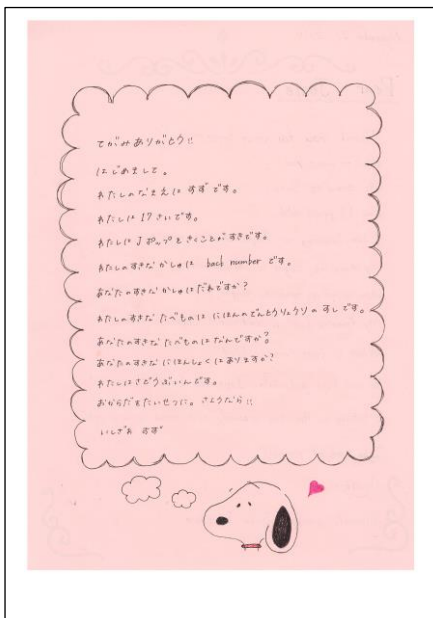 てがみありがとう!!
はじめまして。
わたしのなまえは すず です。
わたしは 17 さいです。
わたしは J ポップをきくことがすきです。
わたしのすきなかしゅは back number です。
あなたのすきなかしゅはだれですか?
わたしのすきなたべものは にほんのでんとうりょうりの すしです。
あなたのすきなたべものはなんですか?
あなたのすきなにほんしょくはありますか?
わたしはさどうぶいんです。
おからだをたいせつに。さようなら!!
いしざわ すず